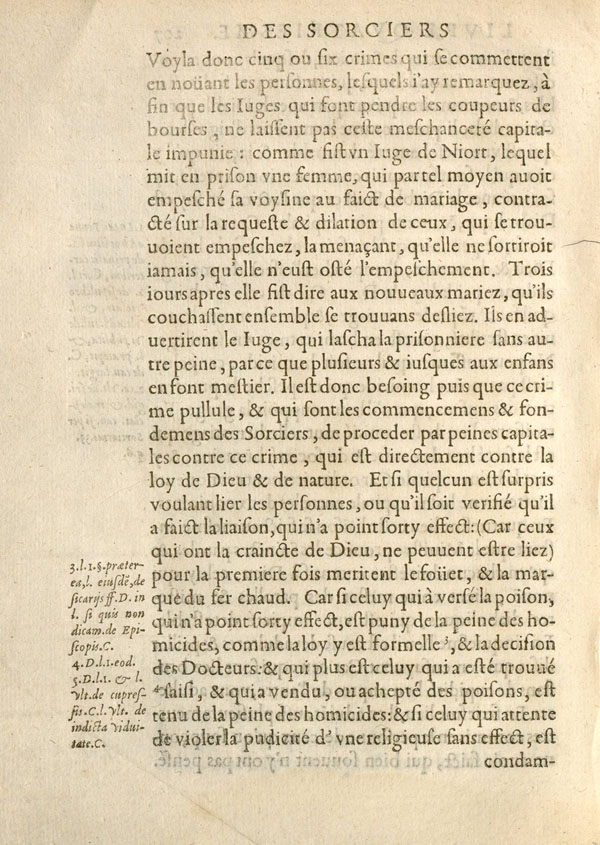 DES SORCIERS
Voyla donc cinq ou six crimes qui se commettent
en noüant les personnes, lesquels i'ay remarquez, à
fin que les Iuges qui font pendre les coupeurs de
bourses, ne laissent pas ceste meschanceté capita-
le impunie : comme fist vn Iuge de Niort, lequel
mit en prison vne femme, qui par tel moyen auoit
empesché sa voysine au faict de mariage, contra-
cté sur la requeste & dilation de ceux, qui se trou-
uoient empeschez, la menaçant, qu'elle ne sortiroit
iamais, qu'elle n'eust osté l'empeschement. Trois
iours apres elle fist dire aux nouueaux mariez, qu'ils
couchassent ensemble se trouuans desliez. Ils en ad-
uertirent le Iuge, qui lascha la prisonniere sans au-
tre peine, par ce que plusieurs & iusques aux enfans
en font mestier. Il est donc besoing puis que ce cri-
me pullule, & qui sont les commencemens & fon-
demens des Sorciers, de proceder par peines capita-
les contre ce crime, qui est directement contre la
loy de Dieu & de nature. Et si quelcun est surpris
voulant lier les personnes, ou qu'il soit verifié qu'il
a faict la liaison, qui n'a point sorty effect: (Car ceux
qui ont la craincte de Dieu, ne peuuent estre liez)
pour la premiere fois meritent le foüet, & la mar-
que du fer chaud. Car si celuy qui à versé la poison,
qui n'a point sorty effect, est puny de la peine des ho-
micides, comme la loy y est formelle 3, & la decision
des Docteurs: & qui plus est celuy qui a esté trouué
4 saisi, & qui a vendu, ou achepté des poisons, est
tenu de la peine des homicides: & si celuy qui attente
de violer la pudicité d'vne religieuse sans effect, est
condam-
3.l.1.§.præter-
ea,l. eiusdē, de
sicarijs ff. D. in
l. si quis non
dicam. de Epi-
scopis.C.
4.D.l.1.eod.
5.D.l.1. & l.
vlt.de cupres-
sis.C.l.vlt. de
indicta vidui-
tate.C.